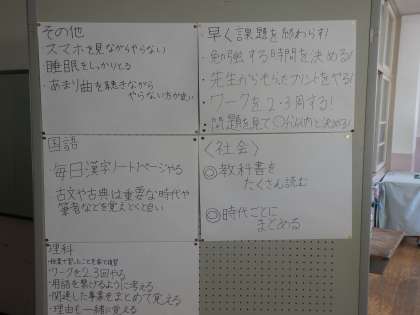 その他
・スマホを見ながらやらない
・睡眠をしっかりとる
・あまり曲を聴きながら
やらない方が良い
早く課題を終わらす!
・勉強する時間を決める!
・先生からもらったプリントをやる!
・ワークを2・3周する!
・問題を見て
決める!
国語
・毎日漢字ノート1ページやる
・古文や古典は重要な時代や
筆者などを覚えとくと良い
〈社会〉
◎教科書を
たくさん読む
◎時代ごとに
まとめる
理科
・授業で習ったことを家で復習
・ワークを2.3回やる
・用語を繋げるように考える
・関連した事業をまとめて覚える
・理由も一緒に覚える